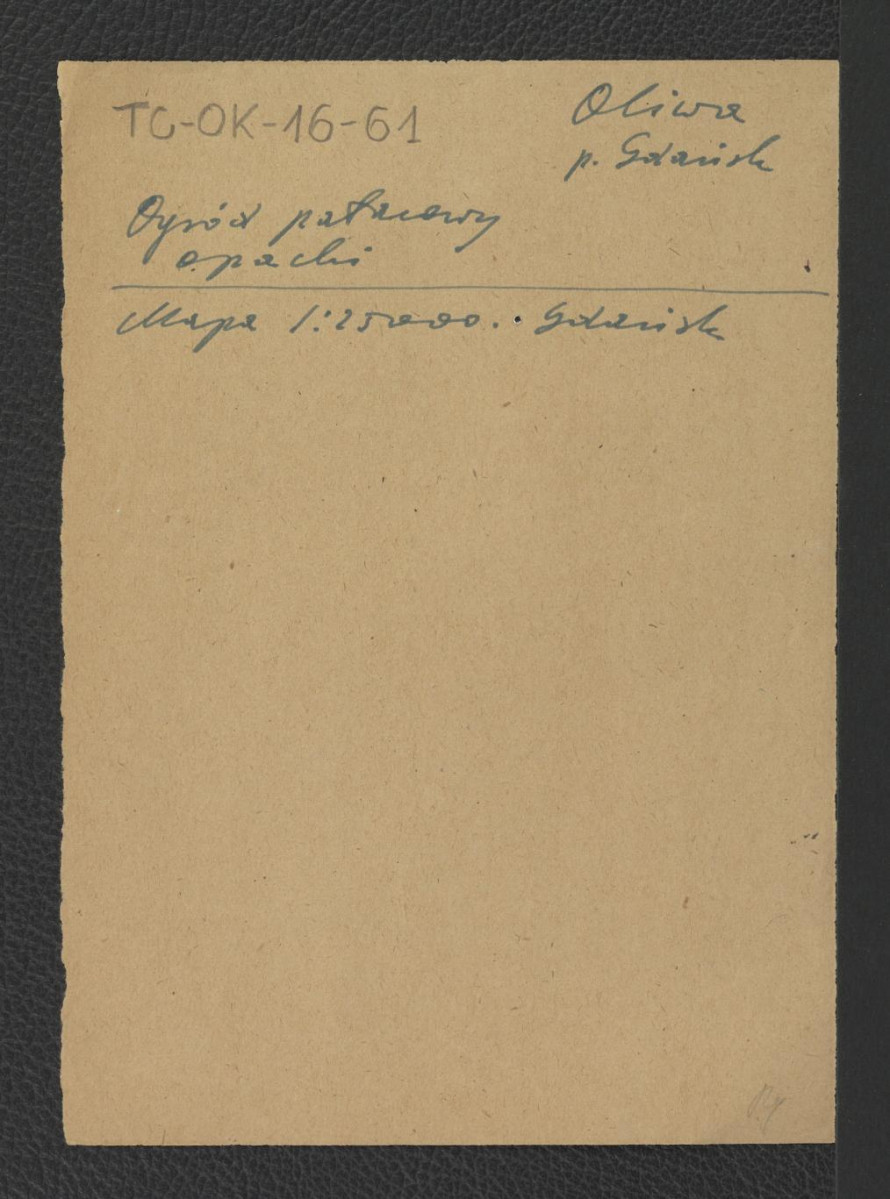 TC-OK-16-61
Oliwa
p. Gdańsk
Ogród pałacowy
opacki
Mapa 1:25000. Gdańsk